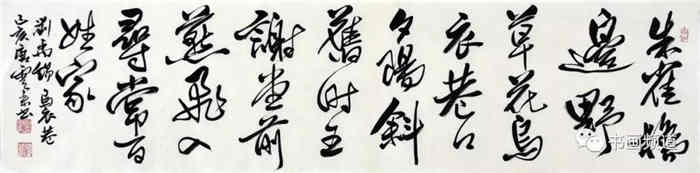 朱雀橋
邊野
草花烏
衣巷口
夕陽斜
舊時王
謝堂前
燕飛入
尋常百
姓家
劉禹錫烏衣巷
书画频道